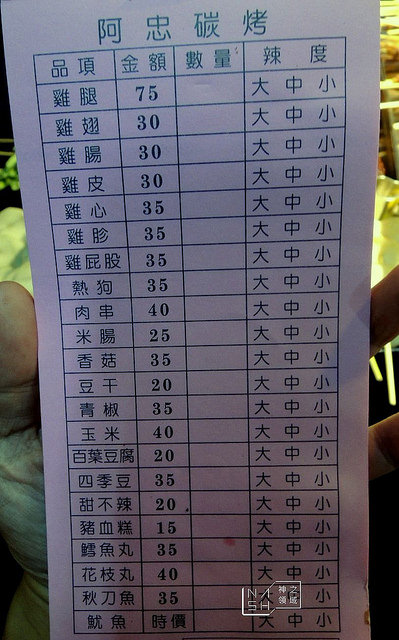 阿忠碳烤
品項 金額 數量 辣度
雞腿 75 大 中 小
雞翅 30 大 中 小
雞腸 30 大 中 小
雞皮 30 大 中 小
雞心 35 大 中 小
雞胗 35 大 中 小
雞屁股 35 大 中 小
熱狗 35 大 中 小
肉串 40 大 中 小
米腸 25 大 中 小
香菇 35 大 中 小
豆干 20 大 中 小
青椒 35 大 中 小
玉米 40 大 中 小
百葉豆腐 20 大 中 小
四季豆 35 大 中 小
甜不辣 20 大 中 小
豬血糕 15 大 中 小
鱈魚丸 35 大 中 小
花枝丸 40 大 中 小
秋刀魚 35 大 中 小
魷魚 時價 大 中 小
NASH 神之領域